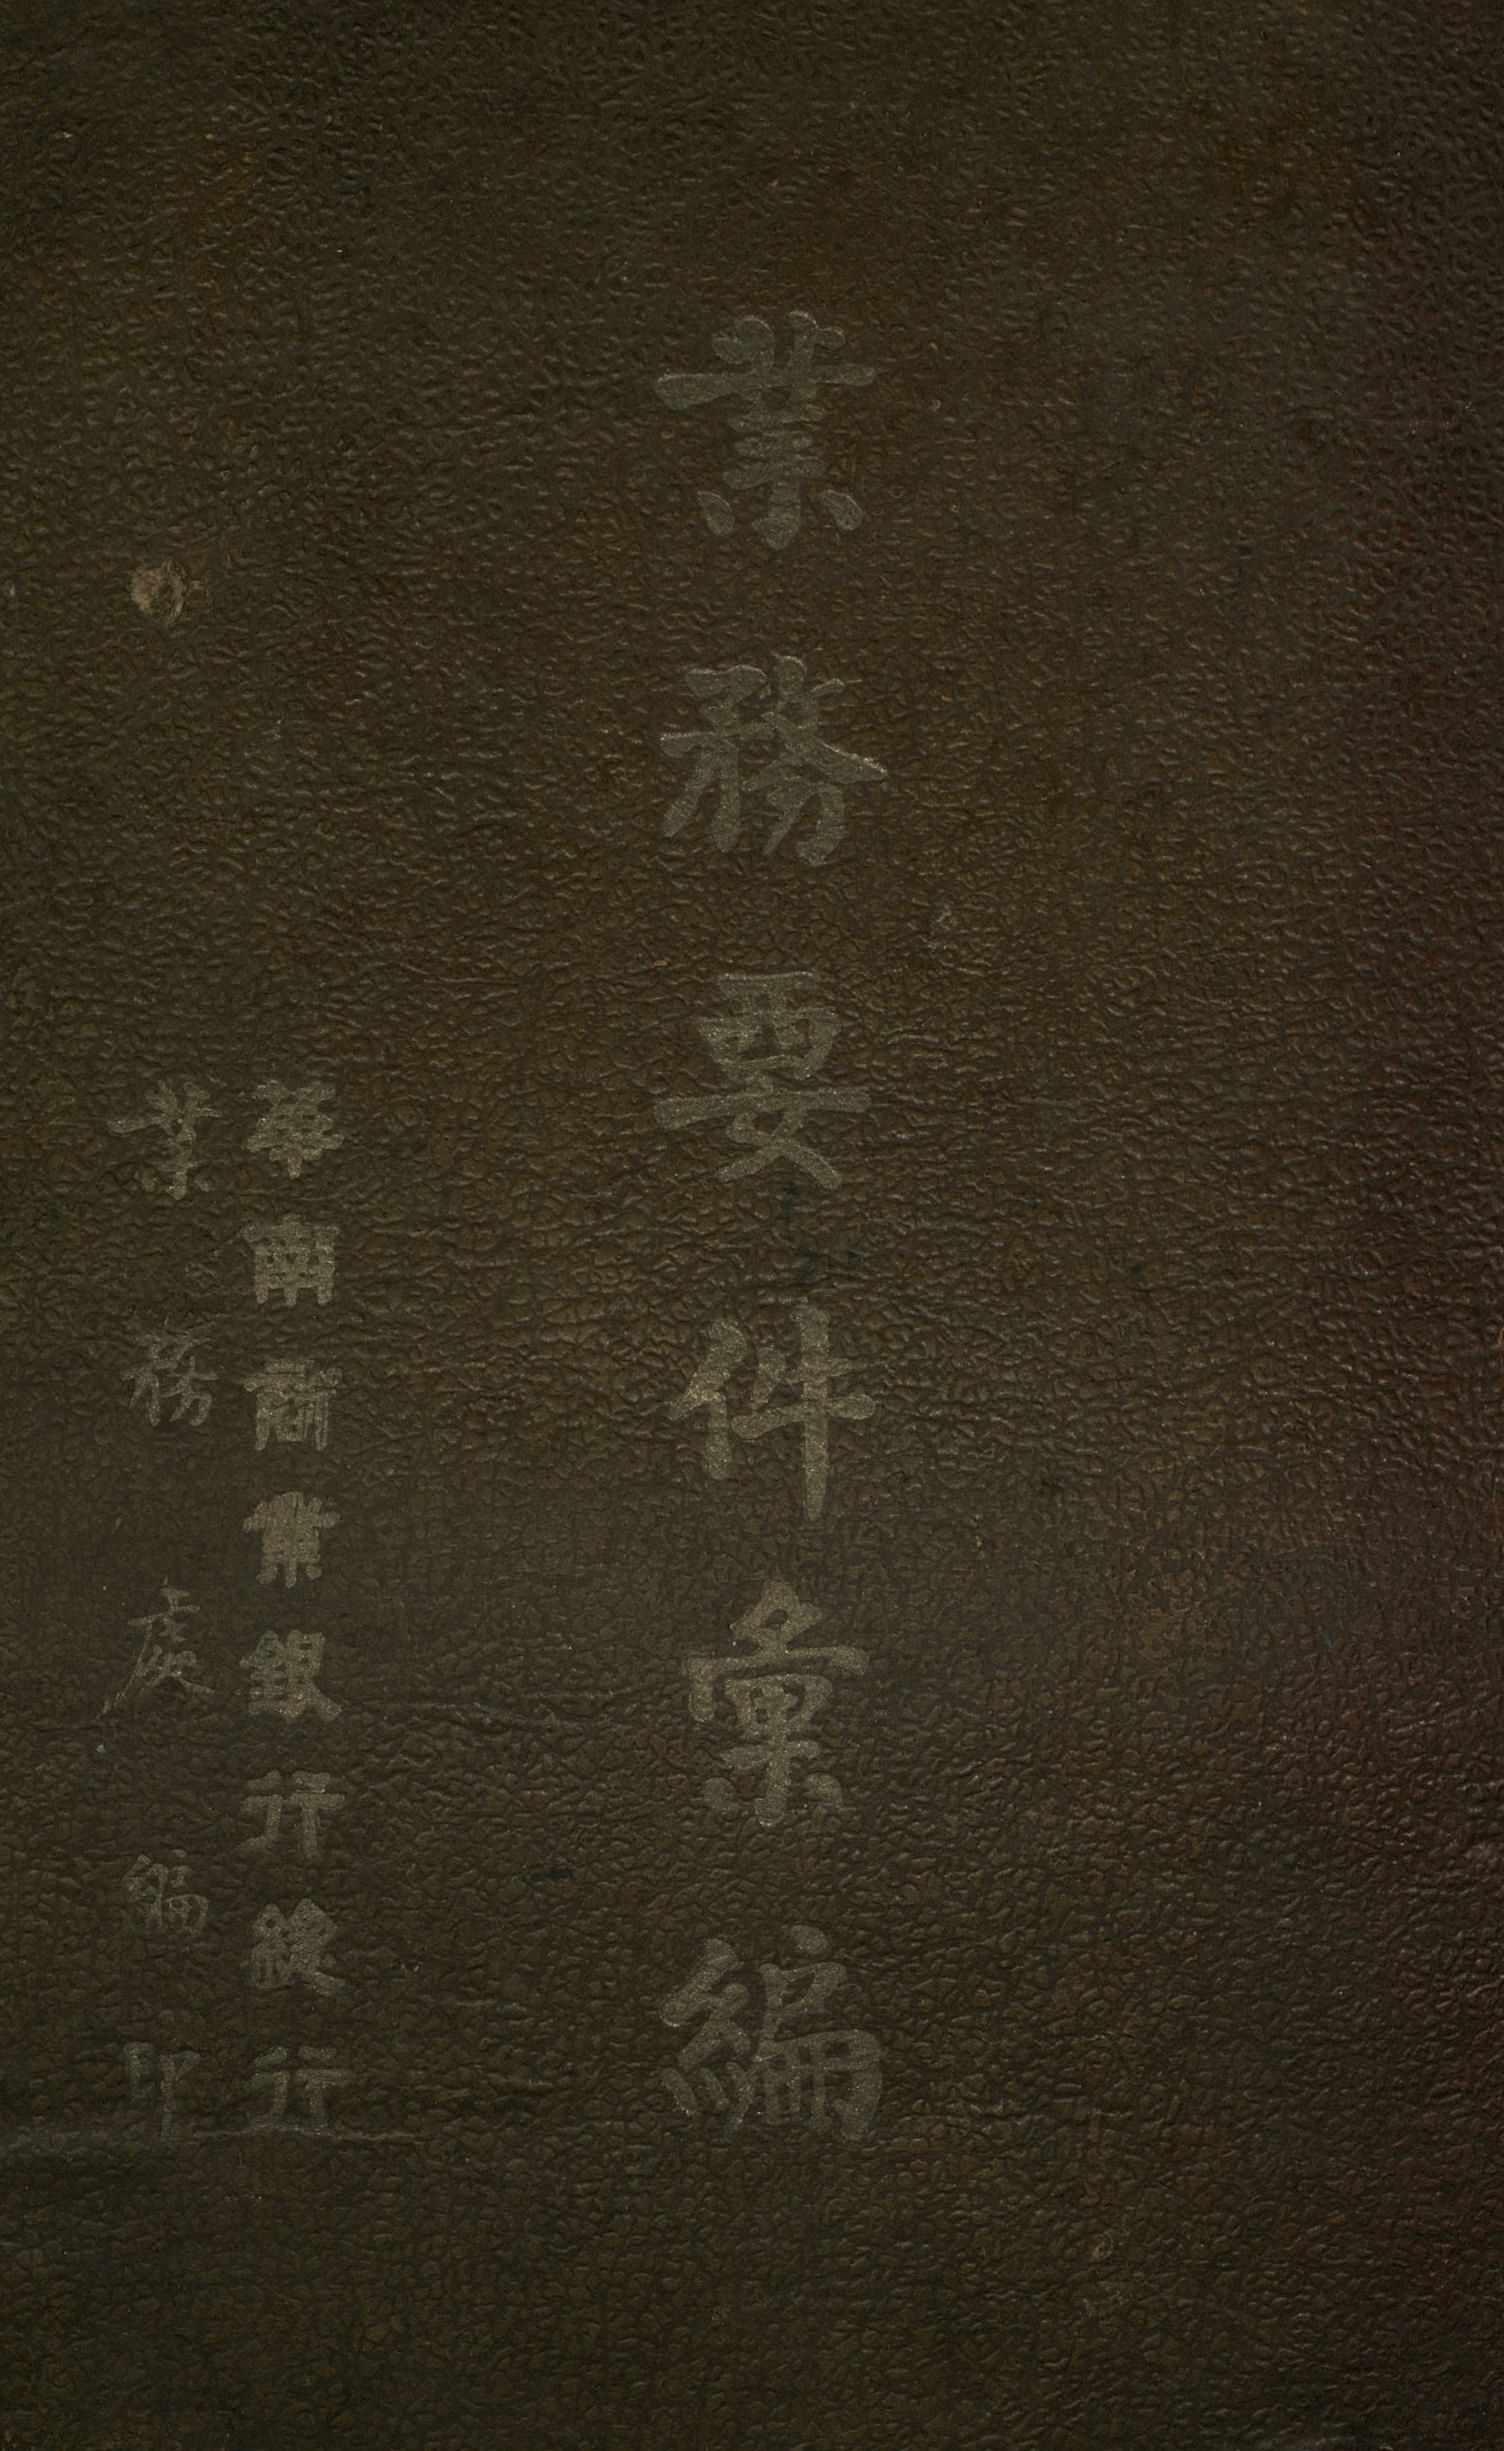 業務要件彙編
華南商業銀行總行
業務處編印